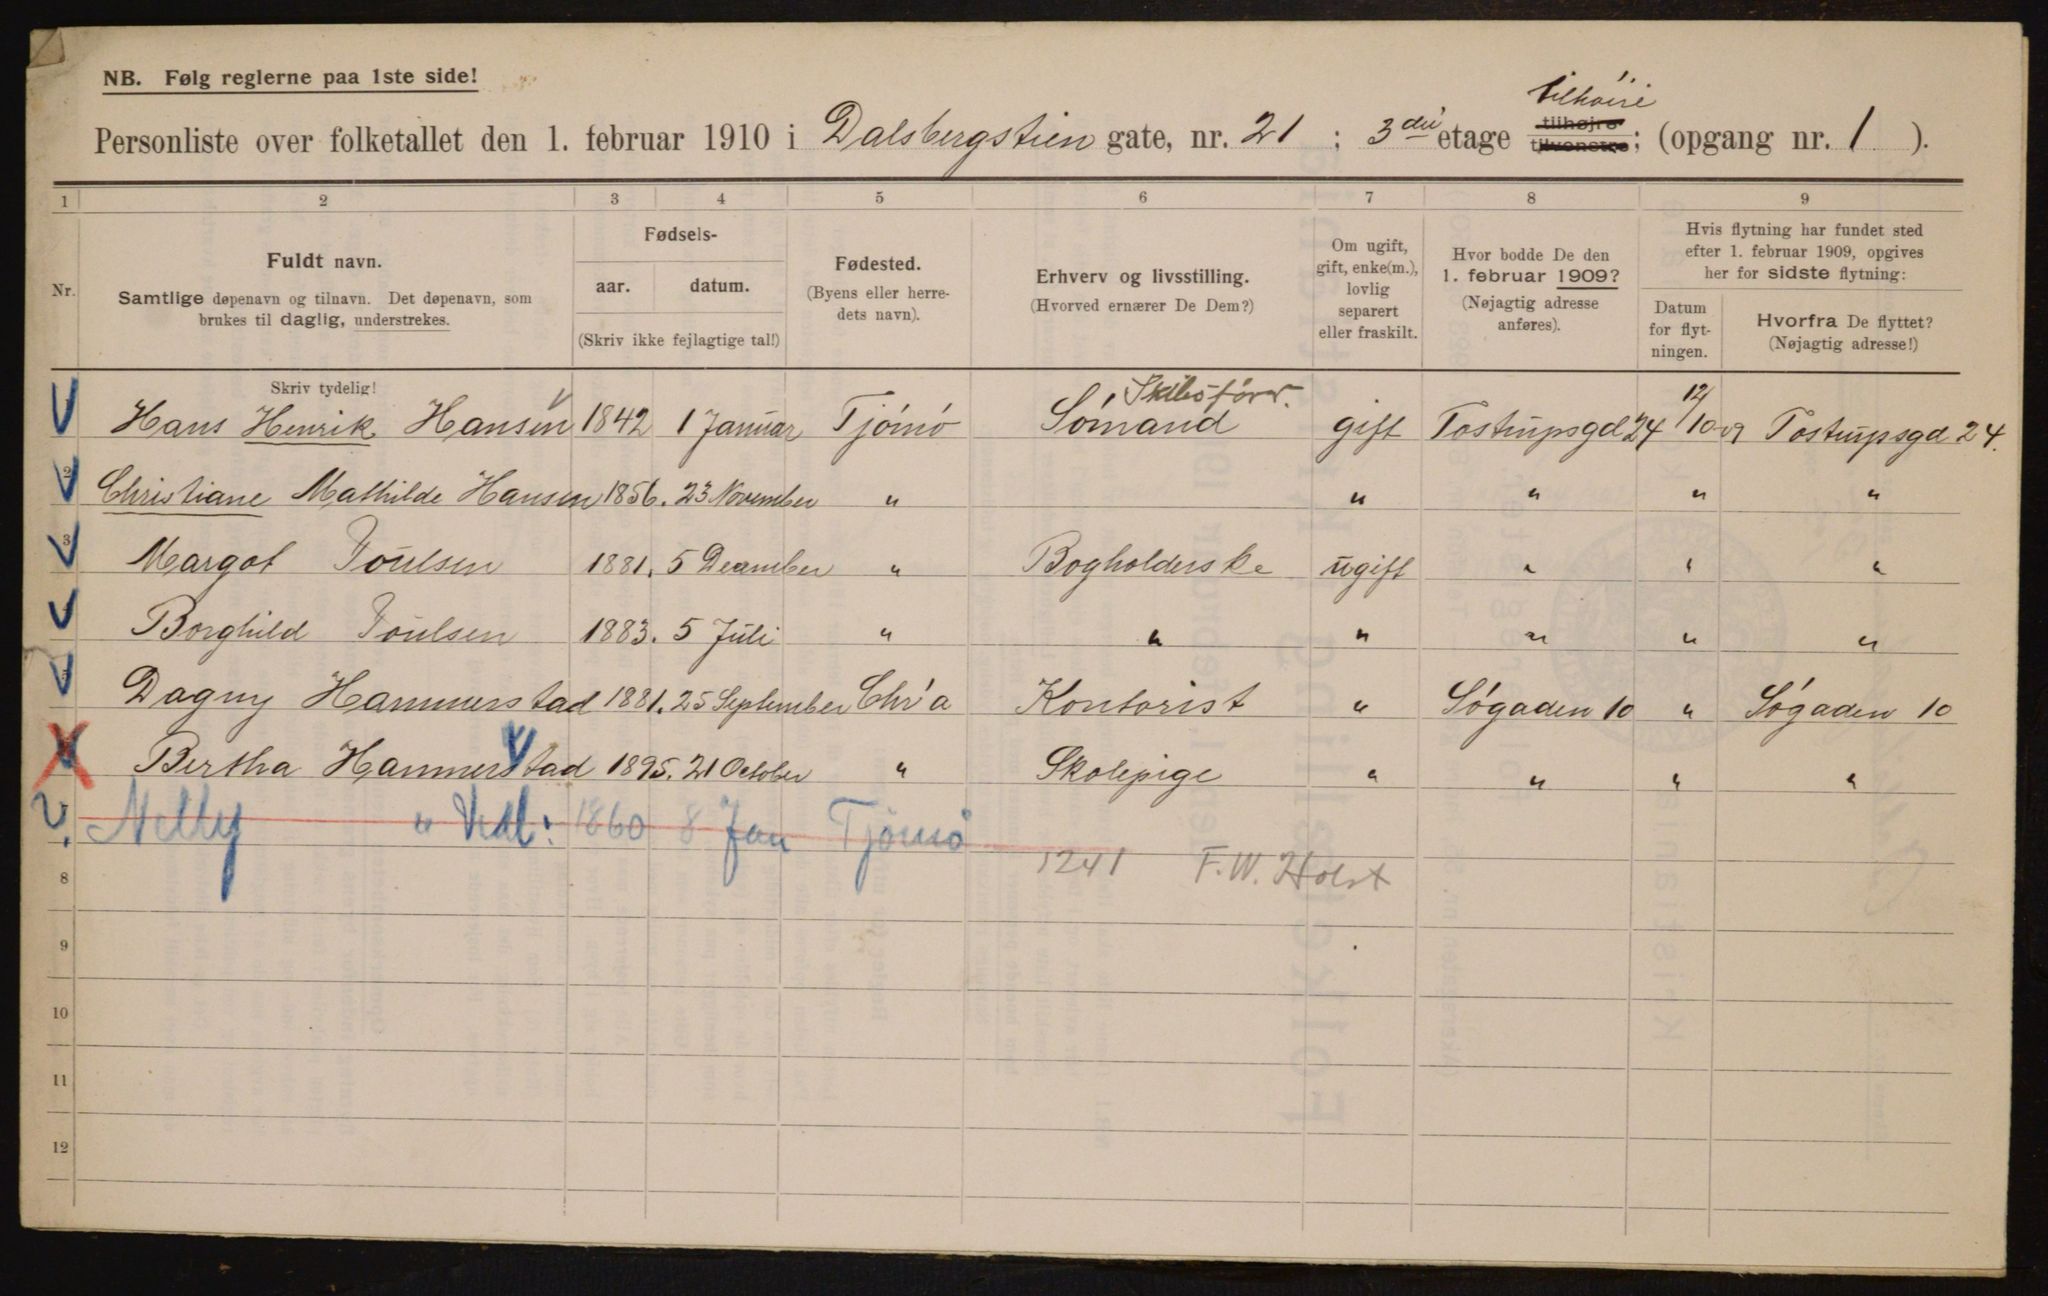 NB. Følg reglerne paa 1ste side!
tilhøire
Personliste over folketallet den 1. februar 1910 i Dalsbergstien gate, nr. 21 ; 3die etage tilhøjre tilvenstre; (opgang nr. 1 ).
1 2 3 4 5 6 7 8 9
Nr.
Fuldt navn.
Samtlige døpenavn og tilnavn. Det døpenavn, som
brukes til daglig, understrekes.
Fødsels-
aar. datum.
(Skriv ikke fejlagtige tal!)
Fødested.
(Byens eller herre-
dets navn).
Erhverv og livsstilling.
(Hvorved ernærer De Dem?)
Om ugift,
gift, enke(m.),
lovlig
separert
eller fraskilt.
Hvor bodde De den
1. februar 1909?
(Nøjagtig adresse
anføres).
Hvis flytning har fundet sted
efter 1. februar 1909, opgives
her for sidste flytning:
Datum
for flyt-
ningen.
Hvorfra De flyttet?
(Nøjagtig adresse!)
Skriv tydelig!
Skibsfører.
Hans Henrik Hansen 1842 1 Januar Tjømø Sømand gift Tostrupsgd 24 12/10 09 Tostrupsgd 24.
2 Christiane Mathilde Hansen 1856. 23 November " " " " "
3 Margot Poulsen 1881. 5 December " Bogholderske ugift " " "
Borghild Poulsen 1883. 5 Juli " " " " " "
5 Dagny Hammerstad 1881. 25 September Chr'a Kontorist " Søgaden 10 " Søgaden 10
Bertha Hammerstad 1895. 21 October " Skolepige " " " "
Nelly " 1860 8 Jan Tjømø
8 1241 F. W. Holst
9
10
11
12